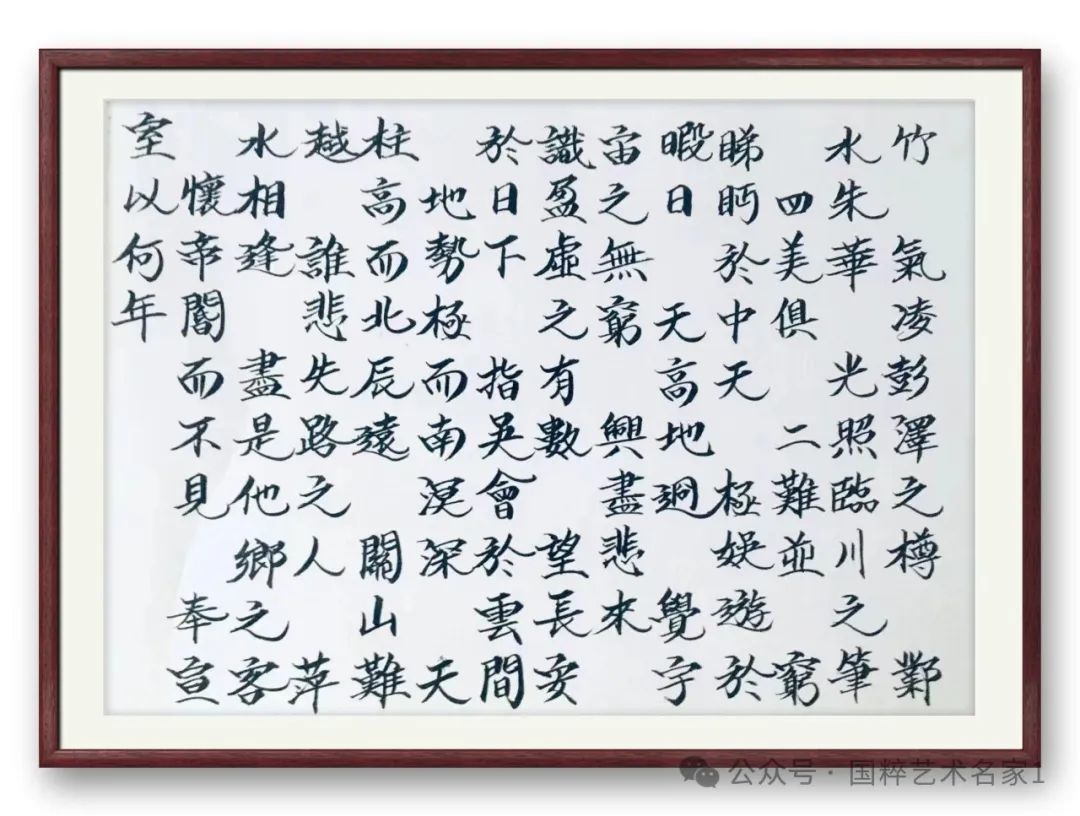 竹 氣凌彭澤之樽 鄴
水朱華 光照臨川之筆
四美俱 二難並 窮
睇眄於中天 極娛遊於
暇日 天高地迥 覺宇
宙之無窮 興盡悲來
識盈虛之有數 望長安
於日下 指吳會於雲間
地勢極而南溟深 天
柱高而北辰遠 關山難
越 誰悲失路之人 萍
水相逢 盡是他鄉之客
懷帝閽而不見 奉宣
室以何年
公众号 · 国粹艺术名家1